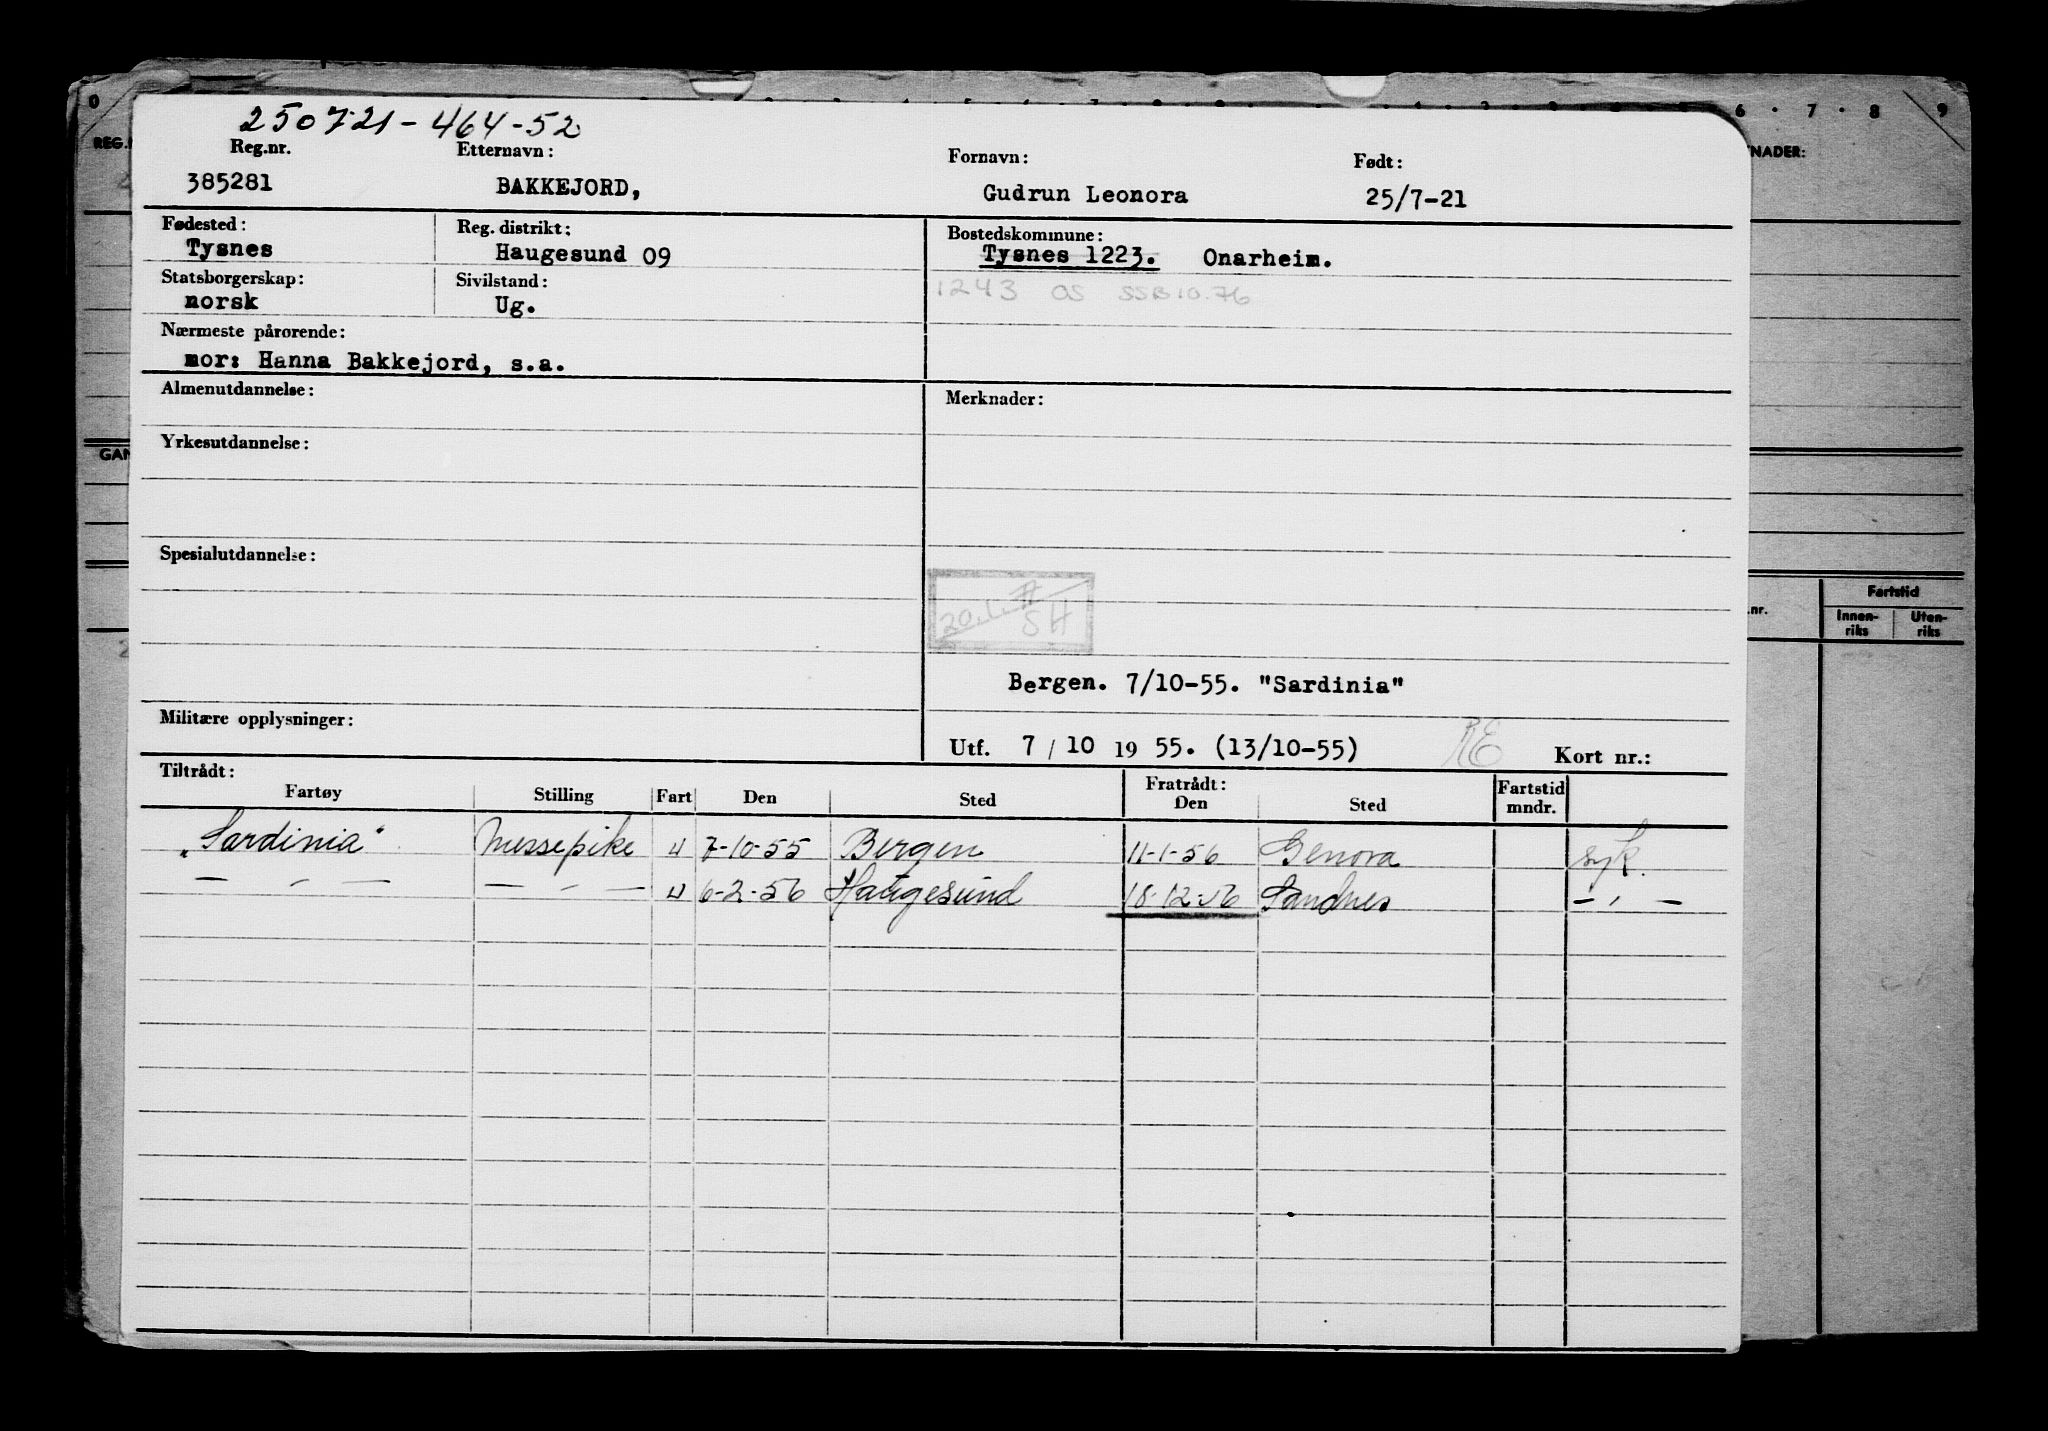 250721-464-52
Reg.nr. Etternavn: Fornavn: Født:
385281 BAKKEJORD, Gudrun Leonora 25/7-21
Fødested: Reg. distrikt: Bostedskommune:
Tysnes Haugesund 09 Tysnes 1223. Onarheim.
Statsborgerskap: Sivilstand: 1243 OS SSB 10.76
norsk Ug.
Nærmeste pårørende:
mor: Hanna Bakkejord, s.a.
Almenutdannelse: Merknader:
Yrkesutdannelse:
Spesialutdannelse:
SH
Bergen. 7/10-55. "Sardinia"
Militære opplysninger:
Utf. 7 / 10 19 55. (13/10-55) RE Kort nr.:
Tiltrådt: Fratrådt: Fartstid
Fartøy Stilling Fart Den Sted Den Sted mndr.
„Sardinia" Messepike U 7-10-55 Bergen 11-1-56 Genova syk.
— " — — " — U 6-2-56 Haugesund 18-12-56 Sandnes — " —
0 6 · 7 · 8 9
NADER:
GAN
.nr. Fartstid
Innen- Uten-
riks riks